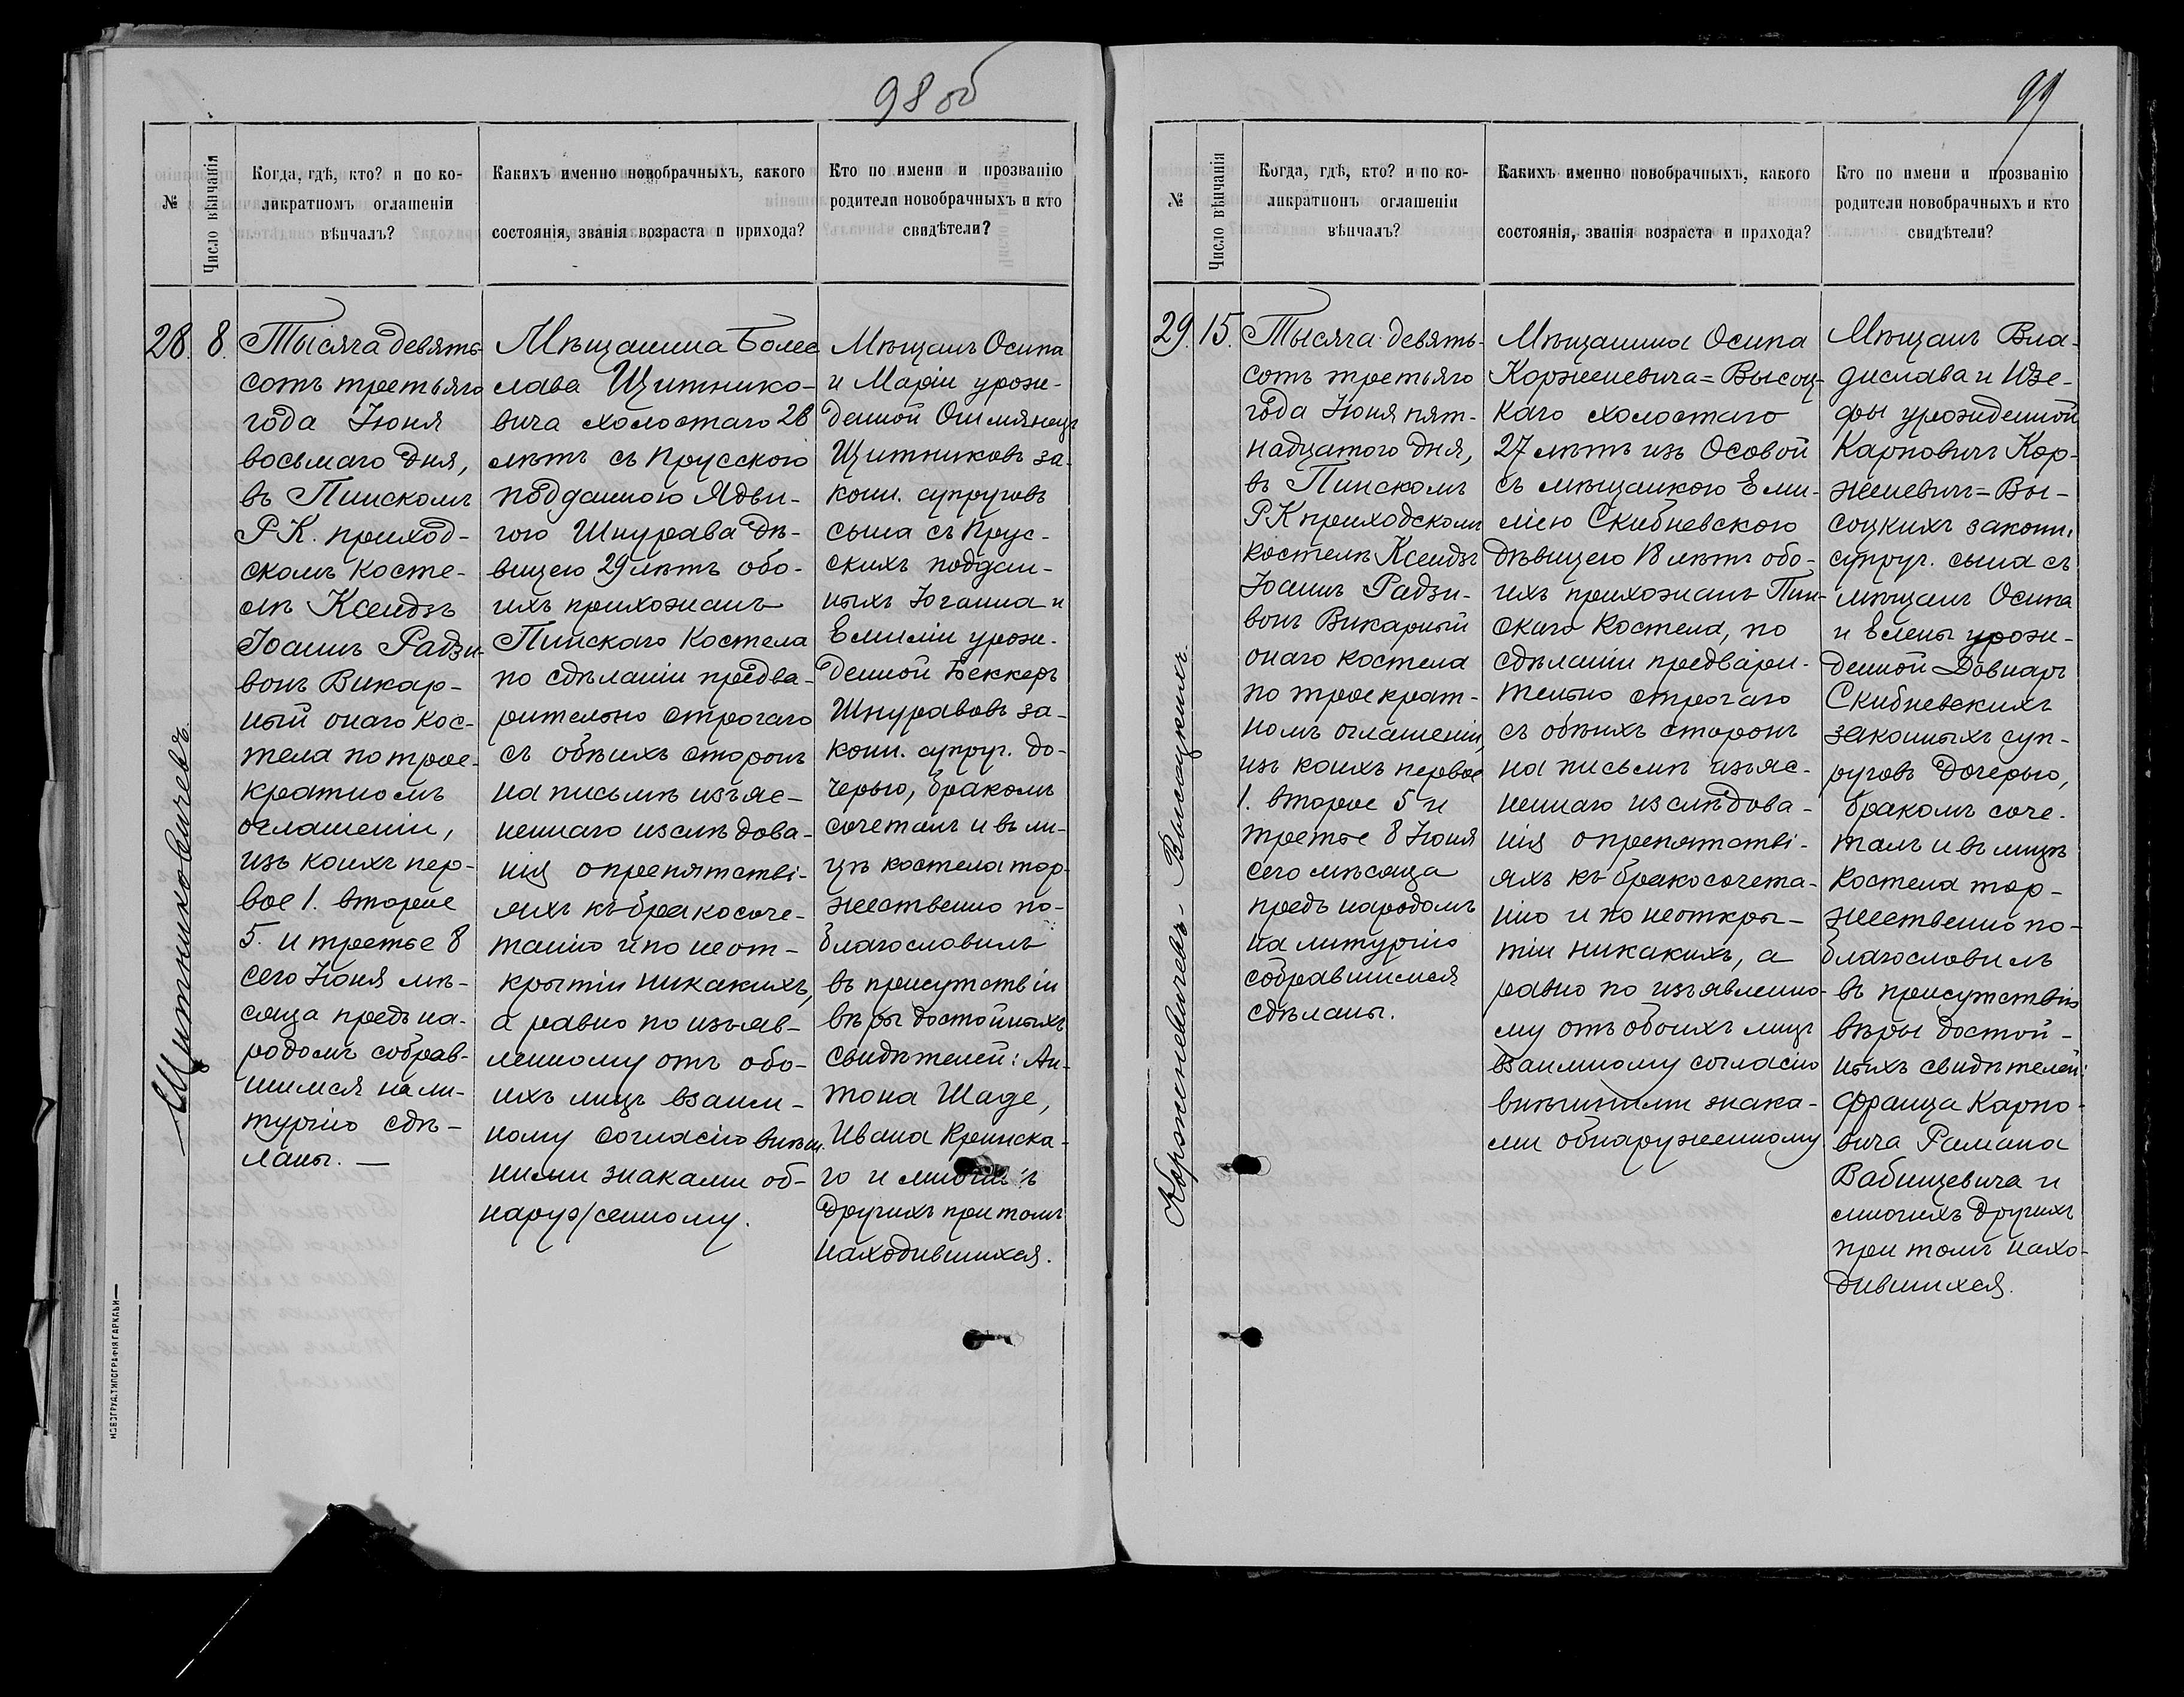 98 об
№
Число вѣнчанія
Когда, гдѣ, кто? и по ко-
ликратномъ оглашеніи
вѣнчалъ?
Какихъ именно новобрачныхъ, какого
состоянія, званія возраста и прихода?
Кто по имени и прозванію
родители новобрачныхъ и кто
свидѣтели?
Щитниковичевъ.
28.
8.
Тысяча девять-
сотъ третьяго
года Іюня
восьмаго дня,
въ Пинскомъ
Р. К. приход-
скомъ косте-
лѣ Ксендзъ
Іоаннъ Радзи-
вонъ Викар-
ный онаго кос-
тела по трое-
кратномъ
оглашеніи,
изъ коихъ пер-
вое 1. второе
5. и третье 8
сего Іюня мѣ-
сяца предъ на-
родомъ собрав-
шимся на ли-
тургію сдѣ-
ланы. —
Мѣщанина Болес
лава Щитнико-
вича холостаго 28
лѣтъ съ Прусскою
подданною Ядви-
гою Шнурава дѣ-
вицею 29 лѣтъ обо-
ихъ прихожанъ
Пинскаго Костела
по сдѣланіи предва-
рительно строгаго
съ обѣихъ сторонъ
на письмѣ изъяс-
неннаго изслѣдова-
нія о препятстві-
яхъ къ бракосоче-
танію и по неот-
крытіи никакихъ,
а равно по изъяв-
ленному отъ обо-
ихъ лицъ взаим-
ному согласію внѣш.
ними знаками об-
наруженному.
Мѣщанъ Осипа
и Маріи урож-
денной Ошмянецъ
Щитниковъ за-
конн. супруговъ
сына съ Прус-
скихъ поддан-
ныхъ Іоганна и
Емиліи урож-
денной Беккеръ
Шнуравовъ за-
конн. супруг. до-
черью, бракомъ
сочеталъ и въ ли-
цѣ костела тор-
жественно по-
благословилъ
въ присутствіи
вѣры достойныхъ
свидѣтелей: Ан-
тона Шаде,
Ивана Кринска-
го и многихъ
другихъ при томъ
находившихся.
НОВОГРУД. ТИПОГРАФІЯ ГАРКАВИ
99
№
Число вѣнчанія
Когда, гдѣ, кто? и по ко-
ликратномъ оглашеніи
вѣнчалъ?
Какихъ именно новобрачныхъ, какого
состоянія, званія возраста и прихода?
Кто по имени и прозванію
родители новобрачныхъ и кто
свидѣтели?
Корженевичевъ - Высоцкихъ.
29.
15.
Тысяча девять-
сотъ третьяго
года Іюня пят-
надцатого дня,
въ Пинскомъ
Р К приходскомъ
костелѣ Ксендзъ
Іоаннъ Радзи-
вонъ Викарный
онаго костела
по троекрат-
номъ оглашеніи,
изъ коихъ первое
1. второе 5 и
третье 8 Іюня
сего мѣсяца
предъ народомъ
на литургію
собравшимся
сдѣланы.
Мѣщанина Осипа
Корженевича=Высоц-
каго холостаго
27 лѣтъ изъ Осовой
съ мѣщанкою Еми-
ліею Скибневскою
дѣвицею 18 лѣтъ обо-
ихъ прихожанъ Пин-
скаго Костела, по
сдѣланіи предвари-
тельно строгаго
съ обѣихъ сторонъ
на письмѣ изъяс-
неннаго изслѣдова-
нія о препятстві-
яхъ къ бракосочета-
нію и по неоткры-
тіи никакихъ, а
равно по изъявленно-
му отъ обоихъ лицъ
взаимному согласію
внѣшними знака-
ми обнаруженному
Мѣщанъ Вла-
дислава и Юзе-
фы урожденной
Карповичъ Кор-
женевичъ=Вы-
соцкихъ законн.
супруг. сына съ
мѣщанъ Осипа
и Елены урож-
денной Довнаръ
Скибневскихъ
законныхъ суп-
руговъ дочерью,
бракомъ соче-
талъ и въ лицѣ
Костела тор-
жественно по-
благословилъ
въ присутствіи
вѣры достой-
ныхъ свидѣтелей:
Франца Карпо-
вича Рамана
Бабицевича и
многихъ другихъ
при томъ нахо-
дившихся.